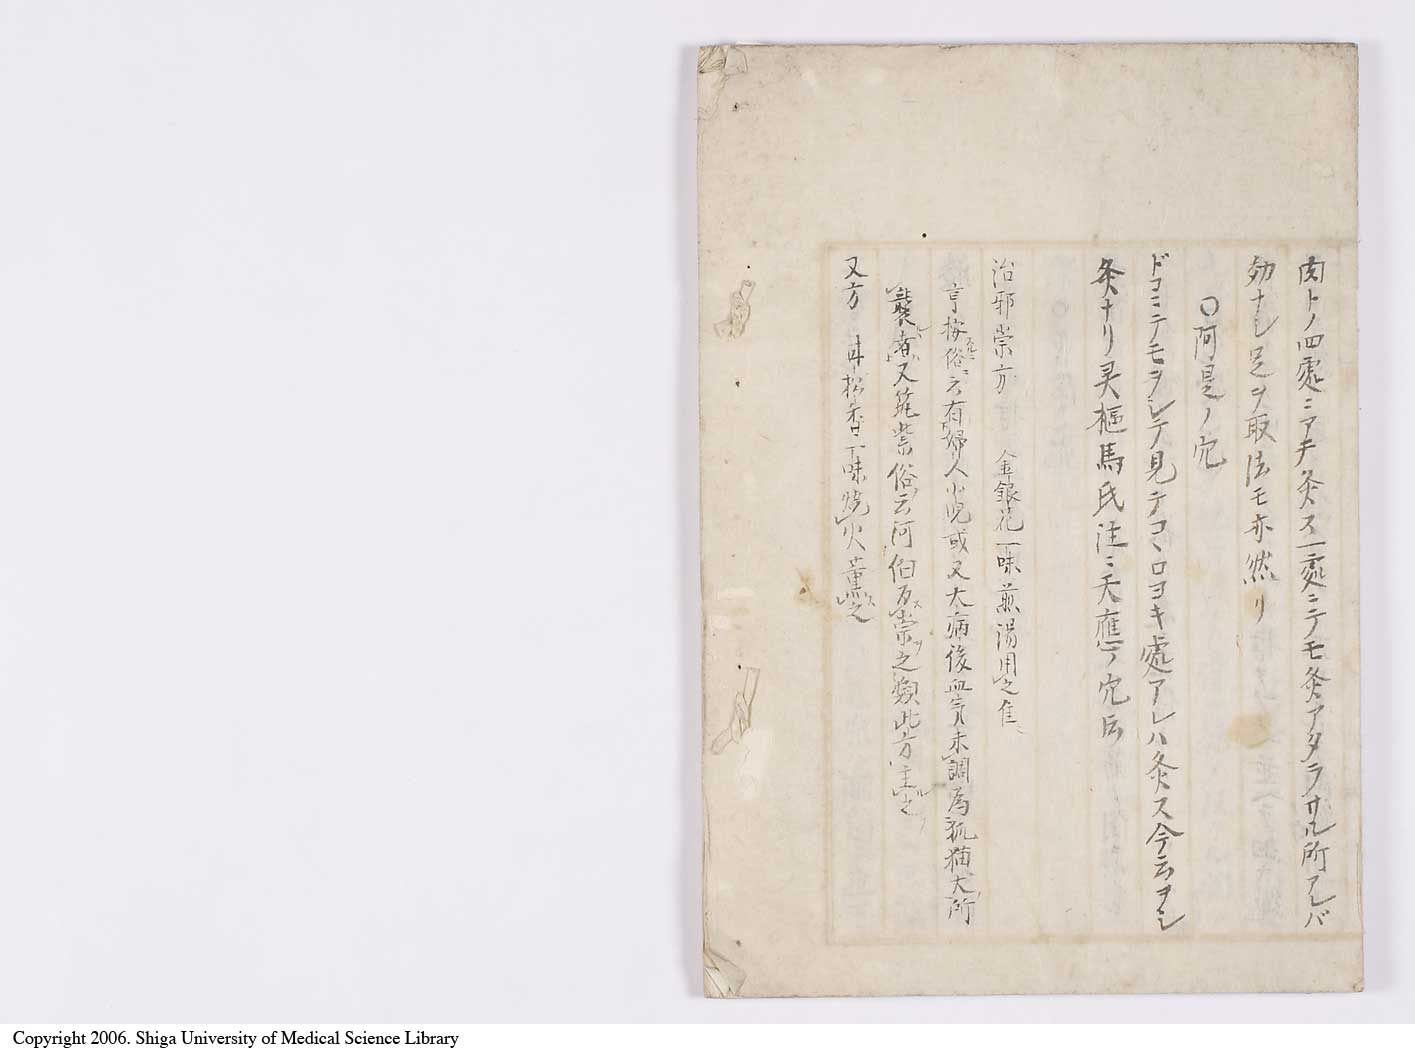 肉トノ四處ニアチ灸ス一處ニテモ灸アタラサル所アレバ
効ナシ足ヲ取法モ亦然リ
〇阿是ノ穴
ドコニテモヲシテ見テコヽロヨキ處アレハ灸ス今云ヲシ
灸ナリ灵樞馬氏注ニ天應ノ穴ト云
治邪祟方 金銀花一味煎湯用之佳
亨按俗ニ云有婦人小児或又大病後血気未調為狐猫犬所
襲者又筑紫俗云河伯為祟之類此方主之
又方 甘松香一味焼火薫之
Copyright 2006. Shiga University of Medical Science Library